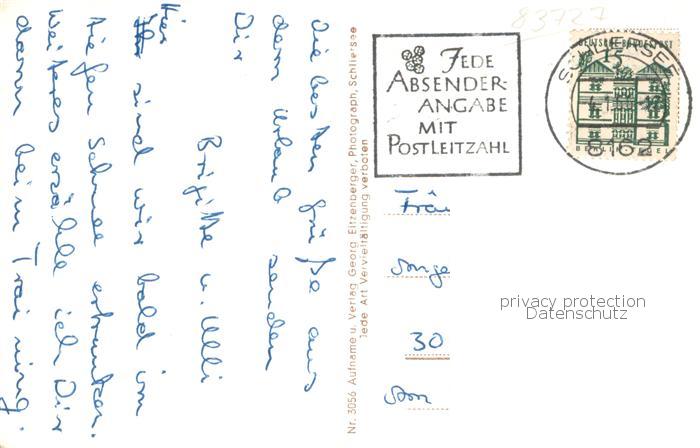 83727
JEDE
ABSENDER-
ANGABE
MIT
POSTLEITZAHL
DEUTSCHE BUNDESPOST
15
SCHLIERSEE
8162
BERLIN TEGEL
Die besten Grüße aus
dem Urlaub senden
Dir
Brigitte u. Ulli
Hier sind wir bald im
tiefen Schnee ertrunken.
Weiteres erzähle ich Dir
dann beim Training.
Nr. 3056 Aufnahme u. Verlag Georg Eitzenberger, Photograph, Schliersee
Jede Art Vervielfältigung verboten
Frau
Inge
30
privacy protection
Datenschutz